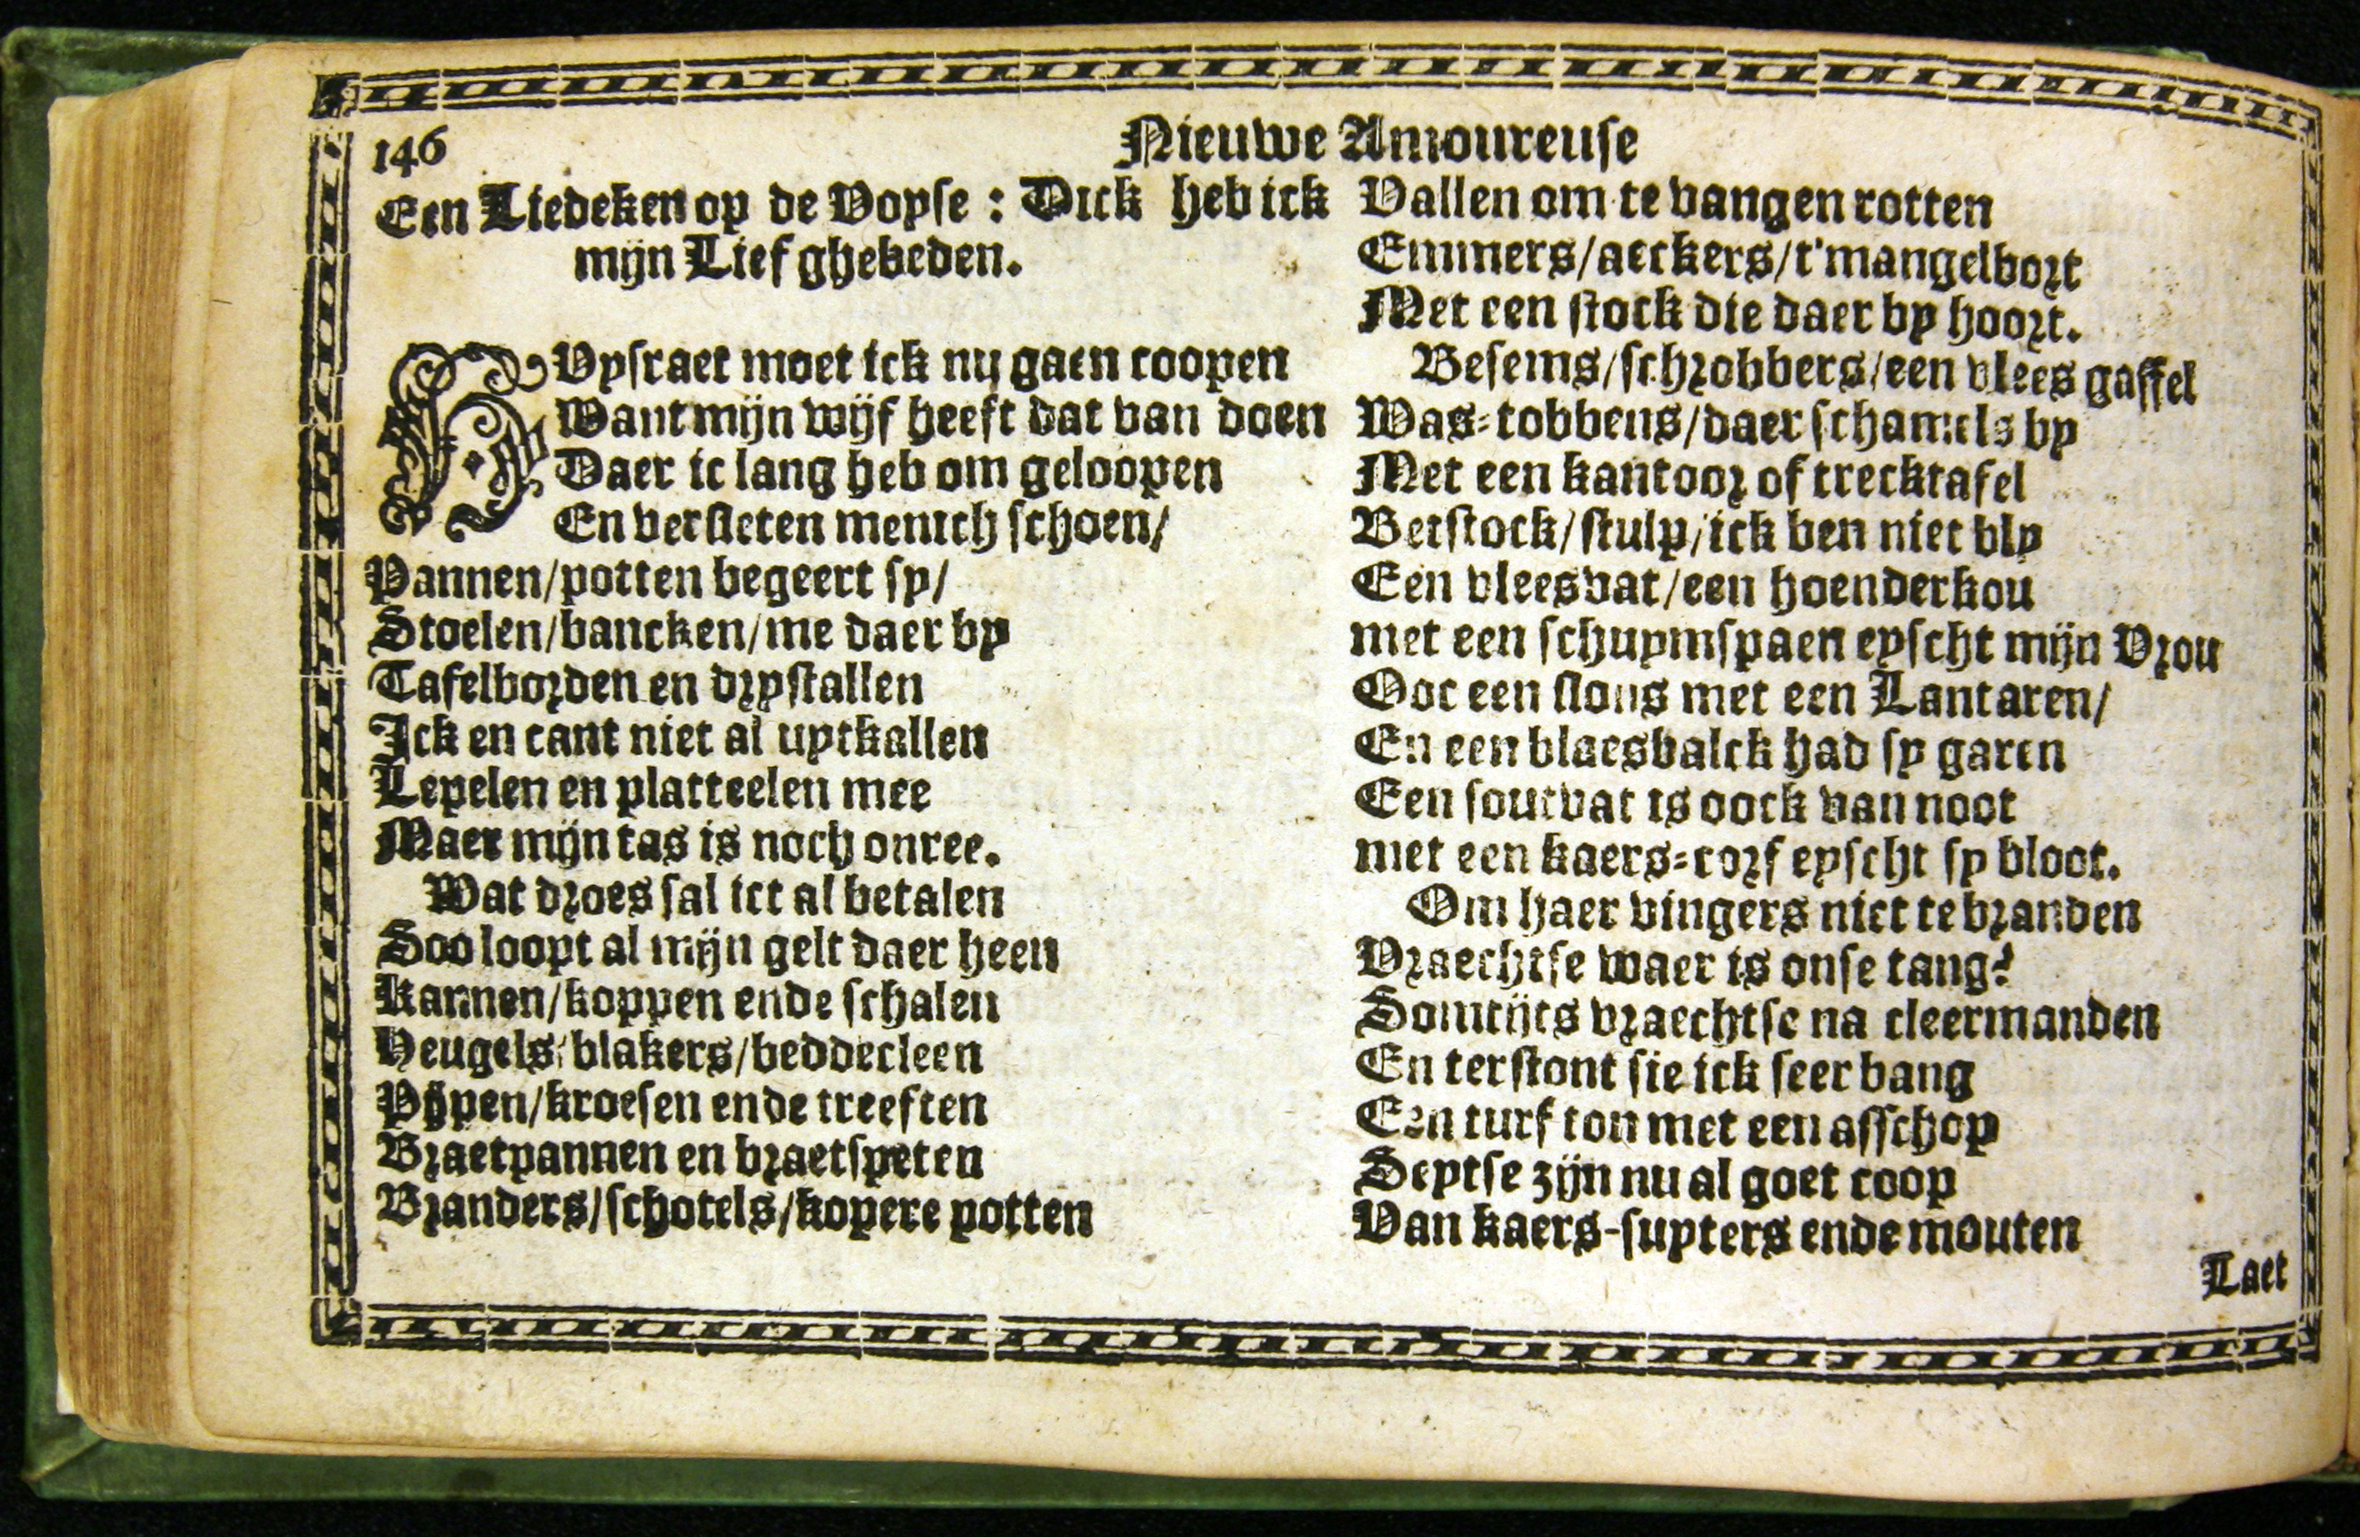 146
Nieuwe Amoureuse
Een Liedeken op de Voyse : Dick heb ick
mijn Lief ghebeden.
HUysraet moet ick nu gaen coopen
Want mijn wijf heeft dat van doen
Daer ic lang heb om geloopen
En versleten menich schoen/
Pannen/potten begeert sy/
Stoelen/bancken/me daer by
Tafelborden en dryстallen
Ick en cant niet al uytkallen
Lepelen en platteelen mee
Maer mijn tas is noch onree.
Wat droes sal ict al betalen
Soo loopt al mijn gelt daer heen
Kannen/koppen ende schalen
Heugels/blakers/beddecleen
Pijpen/kroesen ende treeften
Braetpannen en braetspeten
Branders/schotels/kopere potten
Vallen om te vangen rotten
Emmers/aeckers/t'mangelbort
Met een stock die daer by hoort.
Besems/schrobbers/een vlees gaffel
Was-tobbens/daer schamels by
Met een kantoor of trecktafel
Betstock/stulp/ick ben niet bly
Een vleesvat/een hoenderkou
met een schuymspaen eyscht mijn Vrou
Ooc een slons met een Lantaren/
En een blaesbalck had sy garen
Een soutvat is oock van noot
met een kaers-corf eyscht sy bloot.
Om haer vingers niet te branden
Vraechtse waer is onse tang?
Somtijts vraechtse na cleermanden
En terstont sie ick seer bang
Een turf ton met een asschop
Seytse zijn nu al goet coop
Van kaers-snyters ende mouten
Laet